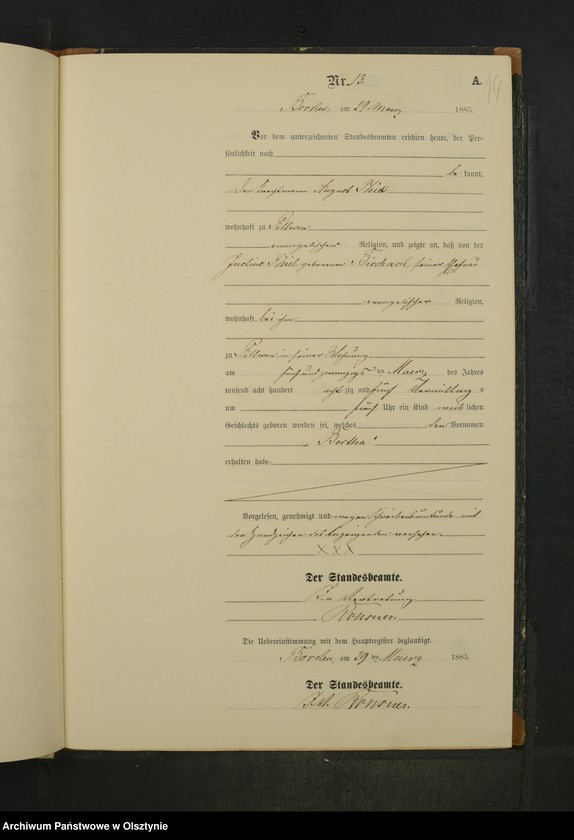 Nr. 13.
A.
14
am 29. Maerz 1885.
Vor dem unterzeichneten Standesbeamten erschien heute, der Per-
sönlichkeit nach
be kannt,
der August Thiel
wohnhaft zu
evangelischer Religion, und zeigte an, daß von der
Justine Thiel geborenen seiner Ehefrau
evangelischer Religion,
wohnhaft bei ihm
zu in seiner Wohnung
am fünfundzwanzigsten Maerz des Jahres
tausend acht hundert acht zig und fünf Vormittags
um fünf Uhr ein Kind weib lichen
Geschlechts geboren worden sei, welches den Vornamen
„Bertha“
erhalten habe.
Vorgelesen, genehmigt und wegen Schreibensunkunde mit
den Handzeichen des Anzeigenden versehen.
XXX
Der Standesbeamte.
In Vertretung
Die Uebereinstimmung mit dem Hauptregister beglaubigt.
am 29 ten Maerz 1885.
Der Standesbeamte.
Archiwum Państwowe w Olsztynie